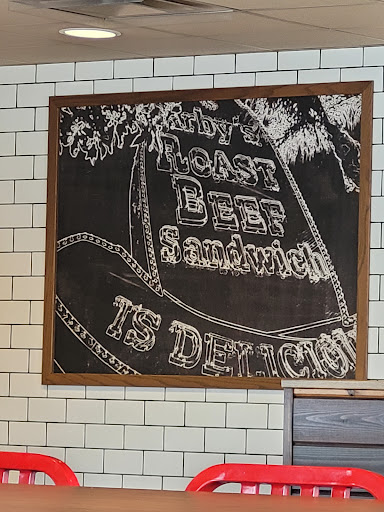 Arby's
ROAST
BEEF
Sandwich
IS DELICIOU